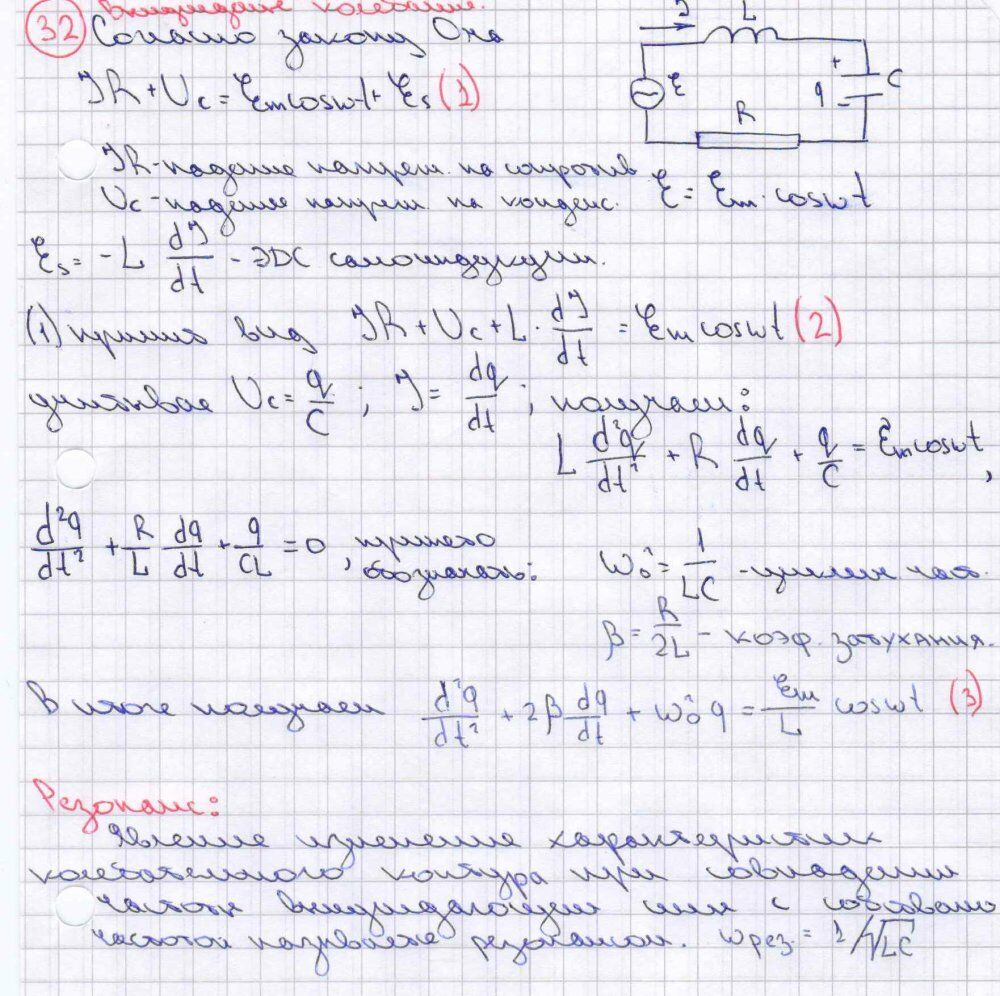 Вынужденые колебания.
32 Согласно закону Ома
L
C
R
q
ℰ
+
−
JR + Uc = ℰm cos ωt + ℰs (1)
JR - падение напряж. на сопротив
Uc - падение напряж. на конденс. ℰ = ℰm · cos ωt
ℰs = -L dJ/dt - ЭДС самоиндукции.
(1) примет вид JR + Uc + L · dJ/dt = ℰm cos ωt (2)
учитывая Uc = q/C ; J = dq/dt ; получаем:
L d²q/dt² + R dq/dt + q/C = ℰm cos ωt,
d²q/dt² + R/L dq/dt + q/CL = 0 , принято обозначать: ω₀² = 1/LC - циклич. част.
β = R/2L - коэф. затухания.
В итоге получаем d²q/dt² + 2β dq/dt + ω₀² q = ℰm/L cos ωt (3)
Резонанс:
Явление изменения характеристик
колебательного контура при совпадении
частоты вынуждающей силы с собственой
частотой называется резонансом. ωрез. = 1/√LC